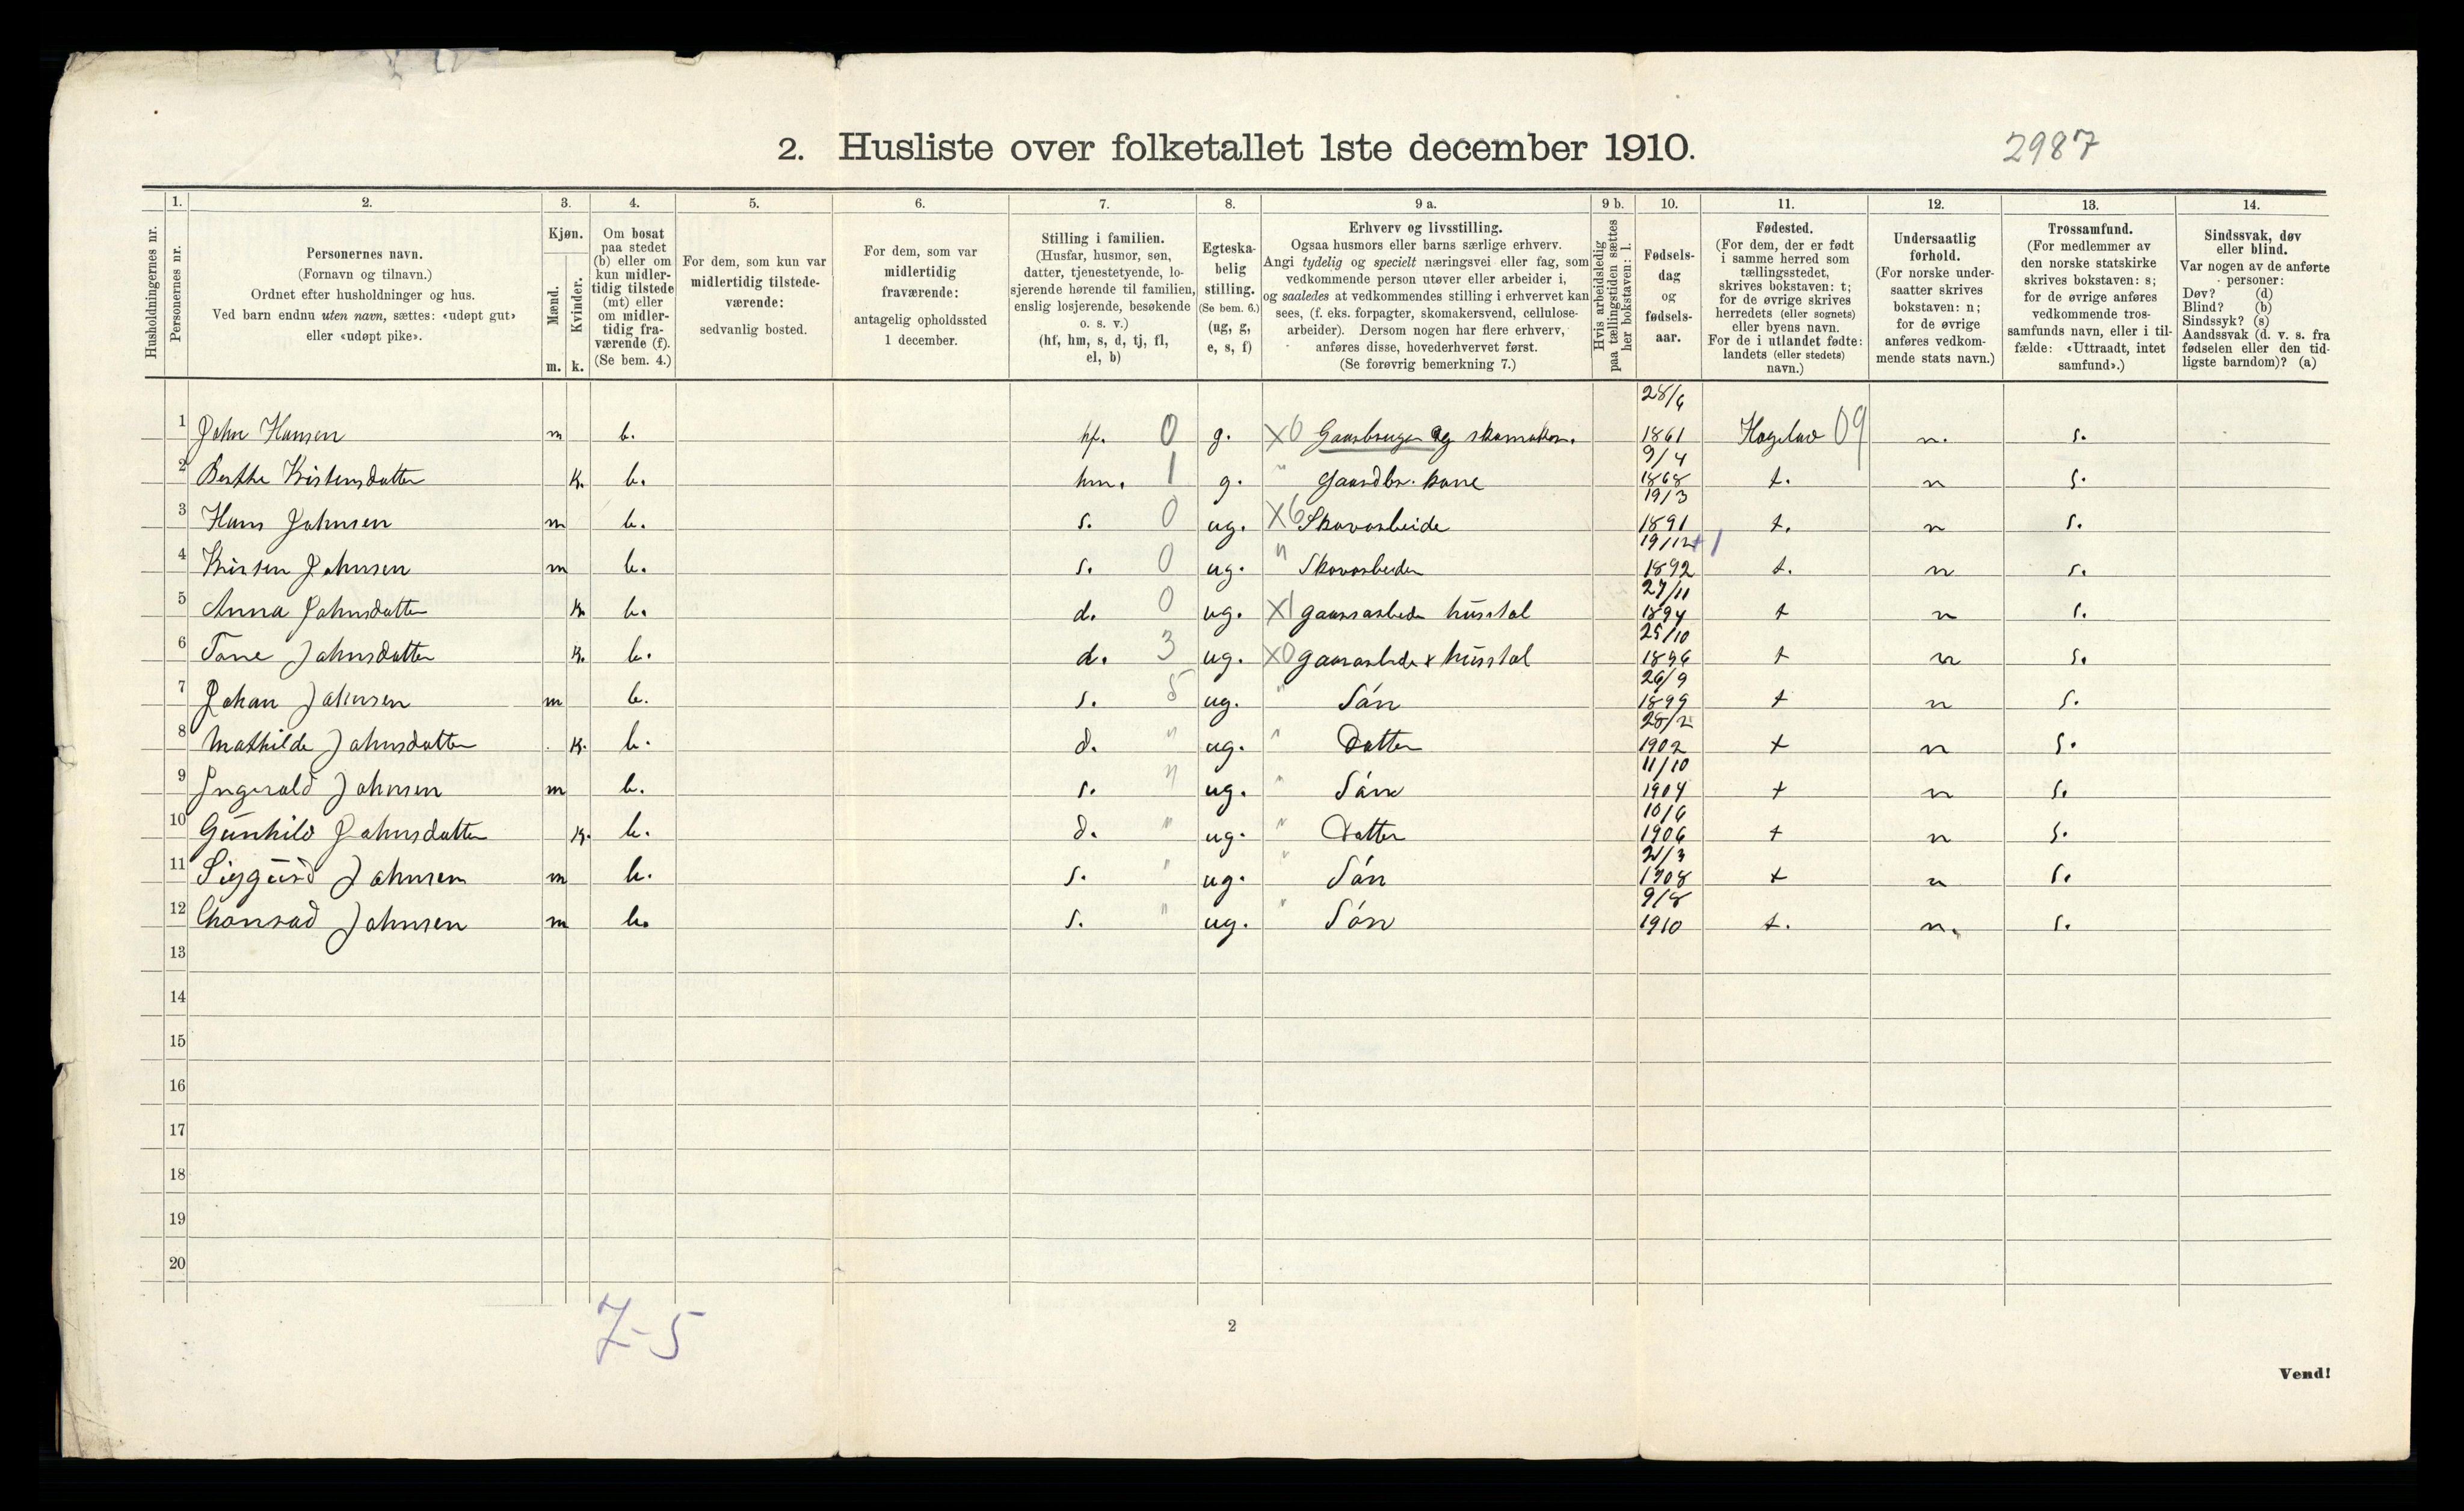 2. Husliste over folketallet 1ste december 1910.
2987
1. 2. 3. 4. 5. 6. 7. 8. 9 a. 9 b. 10. 11. 12. 13. 14.
Husholdningernes nr.
Personernes nr.
Personernes navn.
(Fornavn og tilnavn.)
Ordnet efter husholdninger og hus.
Ved barn endnu uten navn, sættes: «udøpt gut»
eller «udøpt pike».
Kjøn.
Mænd.
Kvinder.
m. k.
Om bosat
paa stedet
(b) eller om
kun midler-
tidig tilstede
(mt) eller
om midler-
tidig fra-
værende (f).
(Se bem. 4.)
For dem, som kun var
midlertidig tilstede-
værende:
sedvanlig bosted.
For dem, som var
midlertidig
fraværende:
antagelig opholdssted
1 december.
Stilling i familien.
(Husfar, husmor, søn,
datter, tjenestetyende, lo-
sjerende hørende til familien,
enslig losjerende, besøkende
o. s. v.)
(hf, hm, s, d, tj, fl,
el, b)
Egteska-
belig
stilling.
(Se bem. 6.)
(ug, g,
e, s, f)
Erhverv og livsstilling.
Ogsaa husmors eller barns særlige erhverv.
Angi tydelig og specielt næringsvei eller fag, som
vedkommende person utøver eller arbeider i,
og saaledes at vedkommendes stilling i erhvervet kan
sees, (f. eks. forpagter, skomakersvend, cellulose-
arbeider). Dersom nogen har flere erhverv,
anføres disse, hovederhvervet først.
(Se forøvrig bemerkning 7.)
Hvis arbeidsledig
paa tællingstiden sættes
her bokstaven: l.
Fødsels-
dag
og
fødsels-
aar.
Fødested.
(For dem, der er født
i samme herred som
tællingsstedet,
skrives bokstaven: t;
for de øvrige skrives
herredets (eller sognets)
eller byens navn.
For de i utlandet fødte:
landets (eller stedets)
navn.)
Undersaatlig
forhold.
(For norske under-
saatter skrives
bokstaven: n;
for de øvrige
anføres vedkom-
mende stats navn.)
Trossamfund.
(For medlemmer av
den norske statskirke
skrives bokstaven: s;
for de øvrige anføres
vedkommende tros-
samfunds navn, eller i til-
fælde: «Uttraadt, intet
samfund».)
Sindssvak, døv
eller blind.
Var nogen av de anførte
personer:
Døv? (d)
Blind? (b)
Sindssyk? (s)
Aandssvak (d. v. s. fra
fødselen eller den tid-
ligste barndom)? (a)
28/6
1 John Hansen m b. hf. 0 g. X0 Gaardbruger og skomaker. 1861 09 n. s.
9/4
2 Berthe Kristensdatter k. b. hm. 1 g. " Gaardbr. kone 1868 t. n s.
19/3
3 Hans Johnsen m b. s. 0 ug. X6 Skovarbeide 1891 t. n s.
19/12 + 1
4 Kristen Johnsen m b. s. 0 ug. " Skovarbeider 1892 t. n s.
27/11
5 Anna Johnsdatter k b. d. 0 ug. X1 husstal 1894 t n s.
25/10
6 Tone Johnsdatter k. b. d. 3 ug. X0 husstel 1896 t n s.
26/9
7 Johan Johnsen m b. s. 5 ug. " Són 1899 t n s.
28/2
8 Mathilde Johnsdatter k. b. d. " ug. " Datter 1902 t n s.
11/10
9 Ingvald Johnsen m b. s. " ug. " Són 1904 t n s.
10/6
10 Gunhild Johnsdatter k. b. d. " ug. " Datter 1906 t n s.
21/3
11 Sigurd Johnsen m b. s. " ug. " Són 1908 t n s.
9/8
12 Chonrad Johnsen m b. s. " ug. " Són 1910 t. n. s.
13
14
15
16
17
18
19
20
7-5
2
Vend!